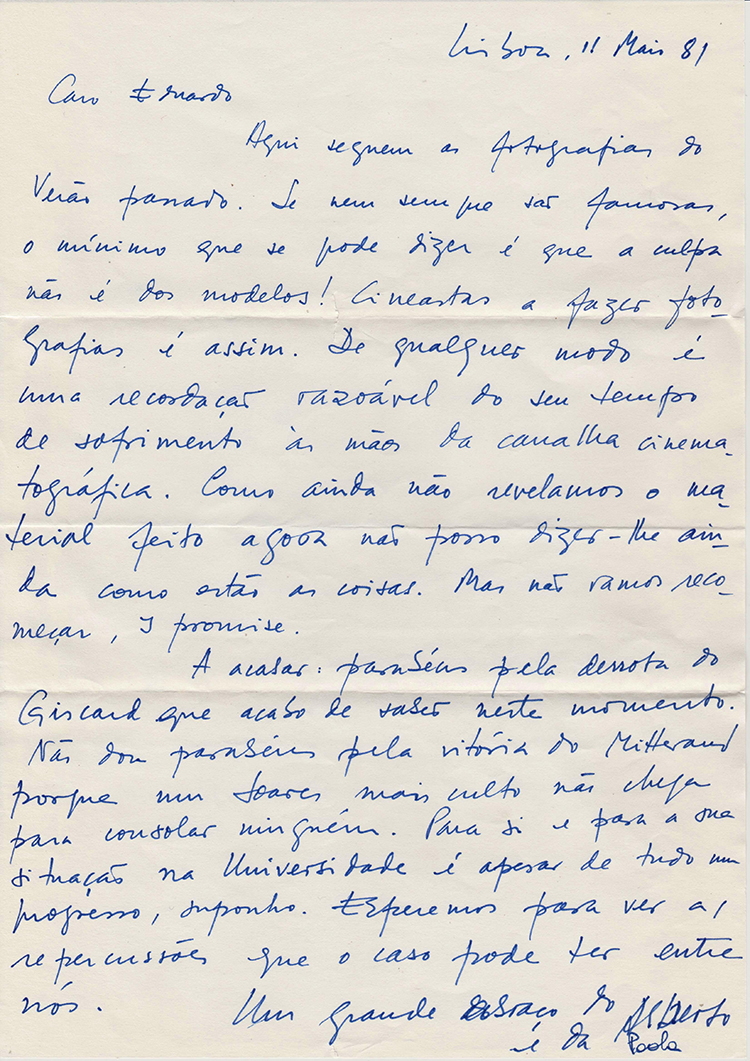 Lisboa, 11 Maio 81
Caro Eduardo
Aqui seguem as fotografias do
Verão passado. Se nem sempre são famosas,
o mínimo que se pode dizer é que a culpa
não é dos modelos! Cineastas a fazer foto-
grafias é assim. De qualquer modo é
uma recordação razoável do seu tempo
de sofrimento às mãos da canalha cinema-
tográfica. Como ainda não revelamos o ma-
terial feito agora não posso dizer-lhe ain-
da como estão as coisas. Mas não vamos reco-
meçar, I promise.
A acabar: parabéns pela derrota do
Giscard que acabo de saber neste momento.
Não dou parabéns pela vitória do Mitterand
porque um Soares mais culto não chega
para consolar ninguém. Para si e para a sua
situação na Universidade é apesar de tudo um
progresso, suponho. Esperemos para ver as
repercussões que o caso pode ter entre
nós.
Um grande abraço do Alberto
e da Paola